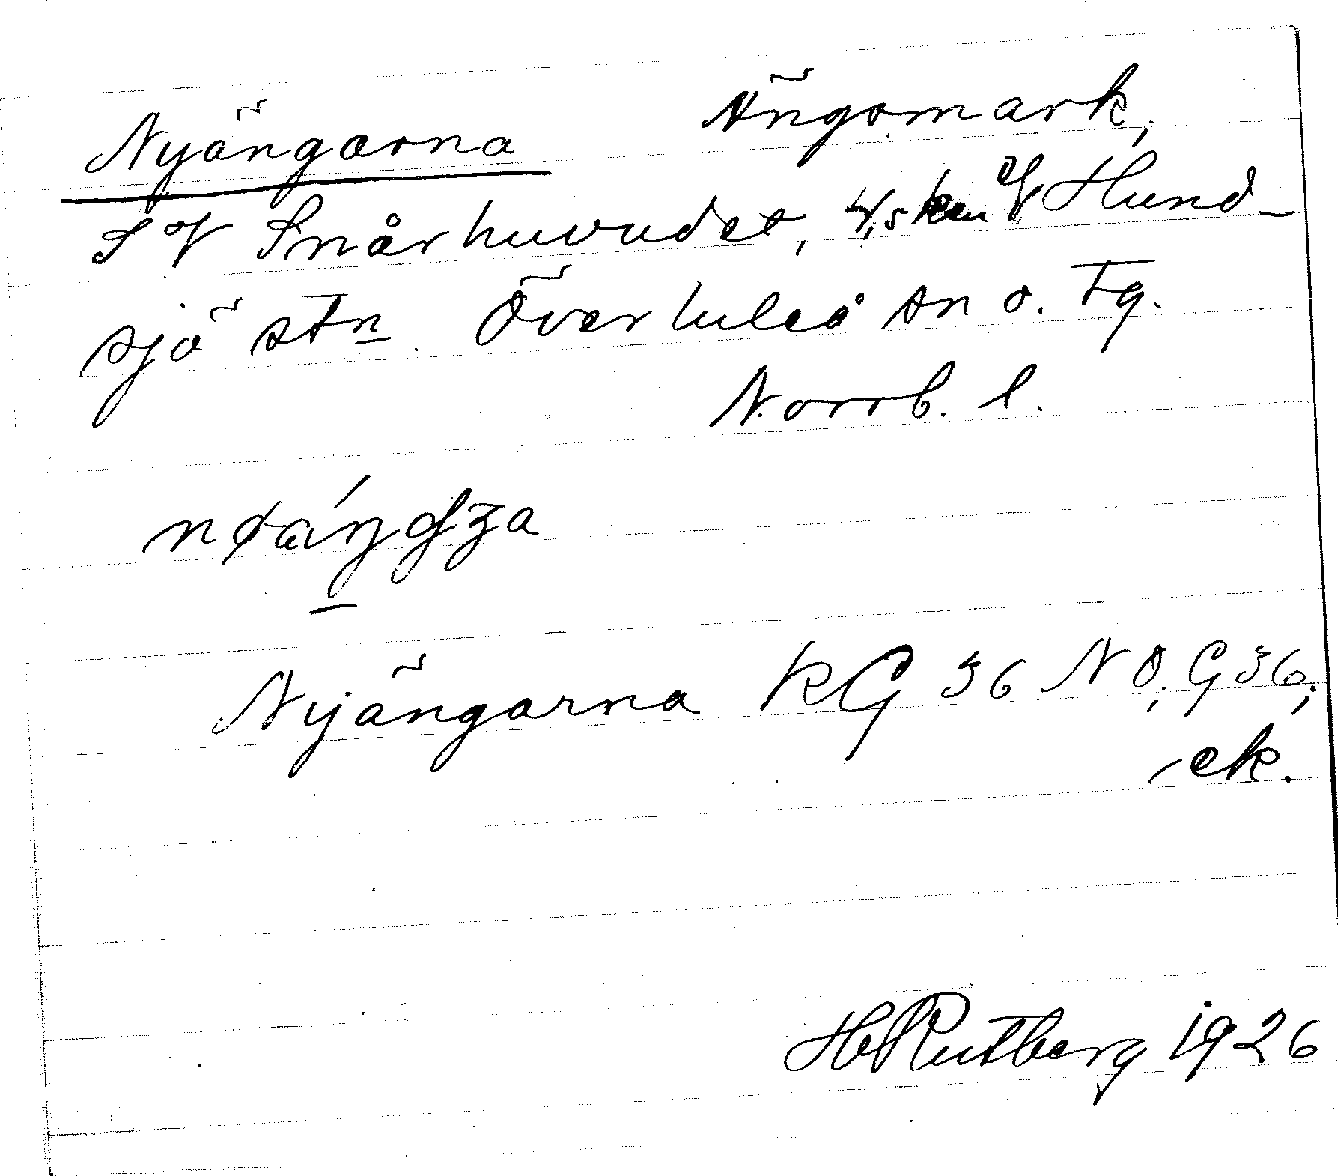 Nyängarna Ängsmark,
SV Snårhuvudet, 4,5 km V Hund-
sjö stn Överluleå sn o. tg.
Norrb. l.
Nyängarna KG 36 NO, G 36,
ek.
H Rutberg 1926